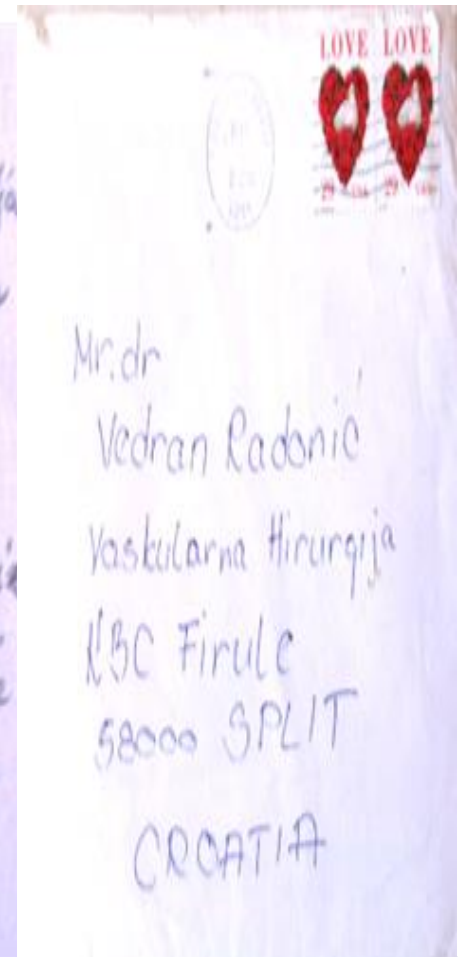 LOVE LOVE
29 29
Mr. dr
Vedran Radonić
Vaskularna Hirurgija
KBC Firule
58000 SPLIT
CROATIA